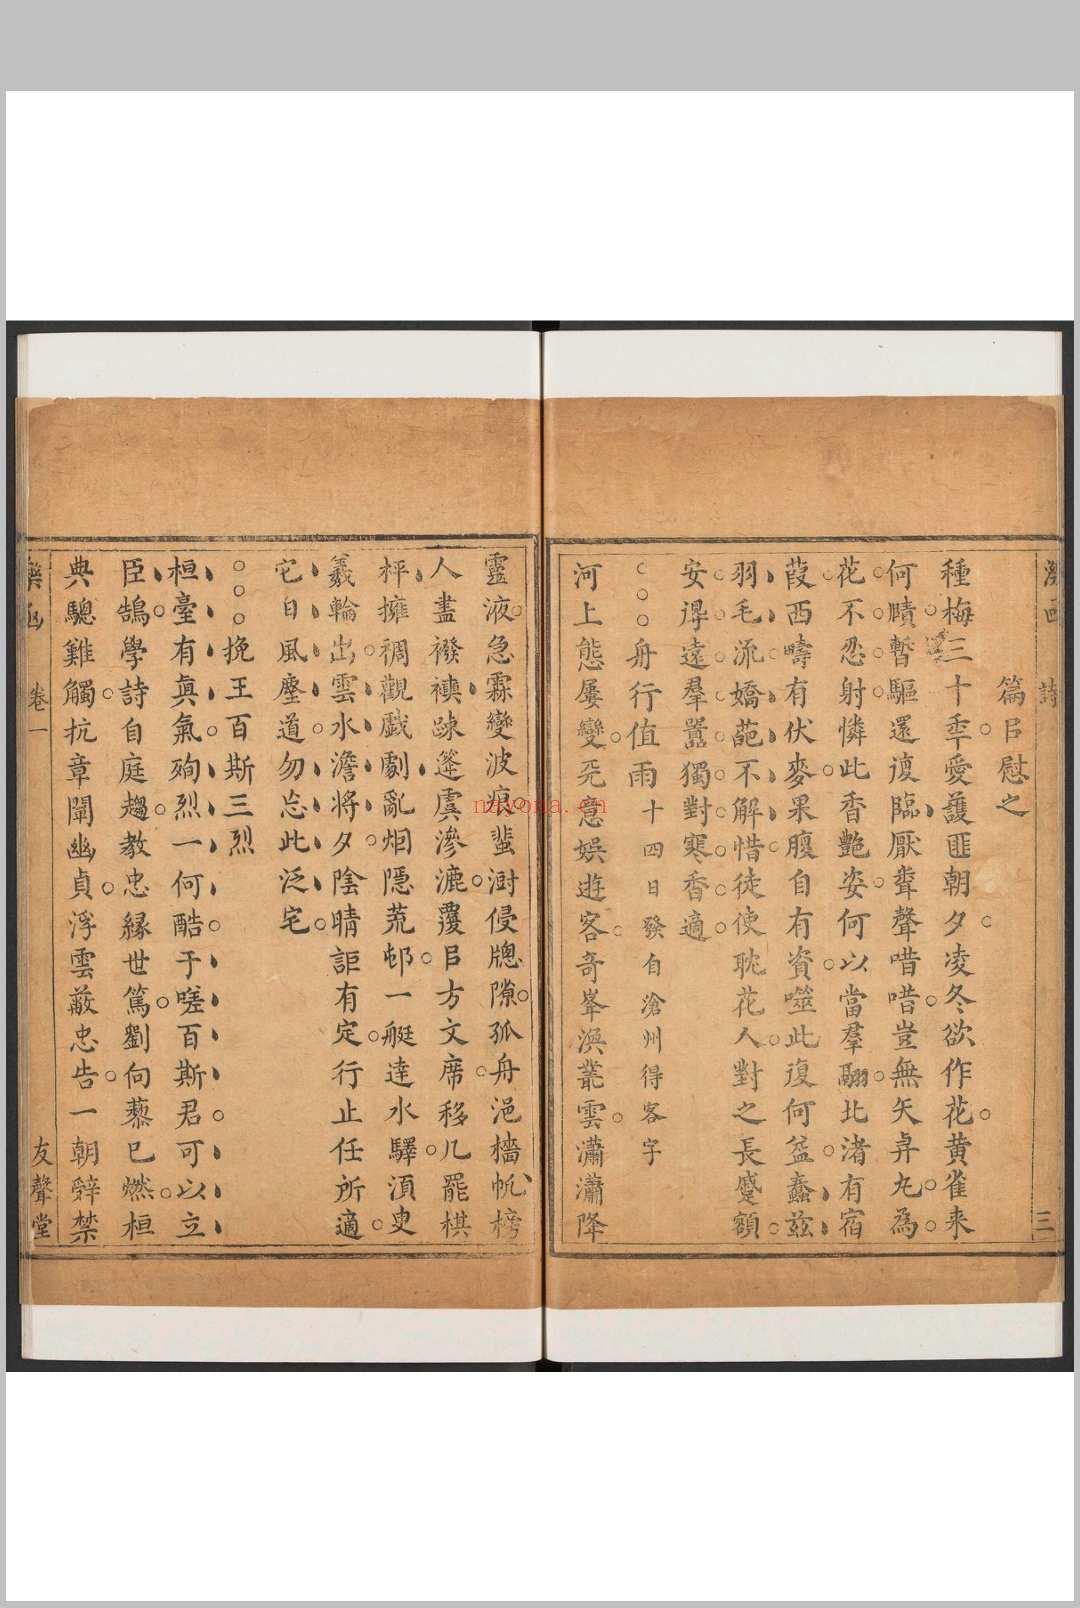 詩
三
篇㠯慰之
種梅三十秊愛護匪朝夕凌冬欲作花黄雀来
何賾暫驅還復臨厭聾聲唶唶豈無矢弁九為
花不忍射憐此香艷姿何以當羣翮北渚有宿
葭西疇有伏麥果腹自有資噬此復何益蠢兹
羽毛流嬌葩不解惜徒使耽花人對之長蹙額
安得遠羣囂獨對寒香適
舟行值雨十四日發自滄州得客字
河上態屢變旡意娱遊客奇峯渙叢雲瀟瀟降
靈液急霖變波痕蜚澍侵牕隙孤舟浥檣帆榜
人盡襏襫踈篷虞滲漉覆㠯方文席移几罷棋
枰擁裯觀戯劇亂烟隱荒邨一艇達水驛湏叟
羲輪出雲水澹將夕陰晴詎有定行止任所適
它日風塵道勿忘此泛宅
挽王百斯三烈
桓臺有眞氣殉烈一何酷于嗟百斯君可以立
臣鵠學詩自庭趨教忠縁世篤劉向藜已燃桓
典驄難觸抗章闡幽貞浮雲蔽忠告一朝辤禁
卷一
友聲堂
nuvona.cn